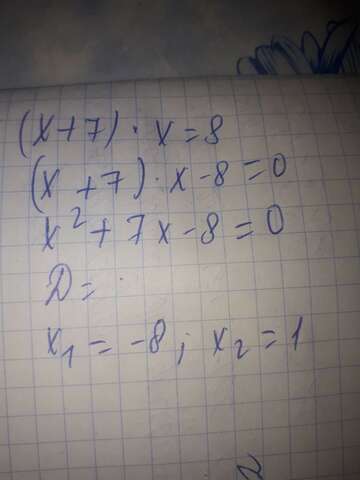 (x+7)·x=8
(x+7)·x-8=0
x²+7x-8=0
D=
x₁=-8; x₂=1